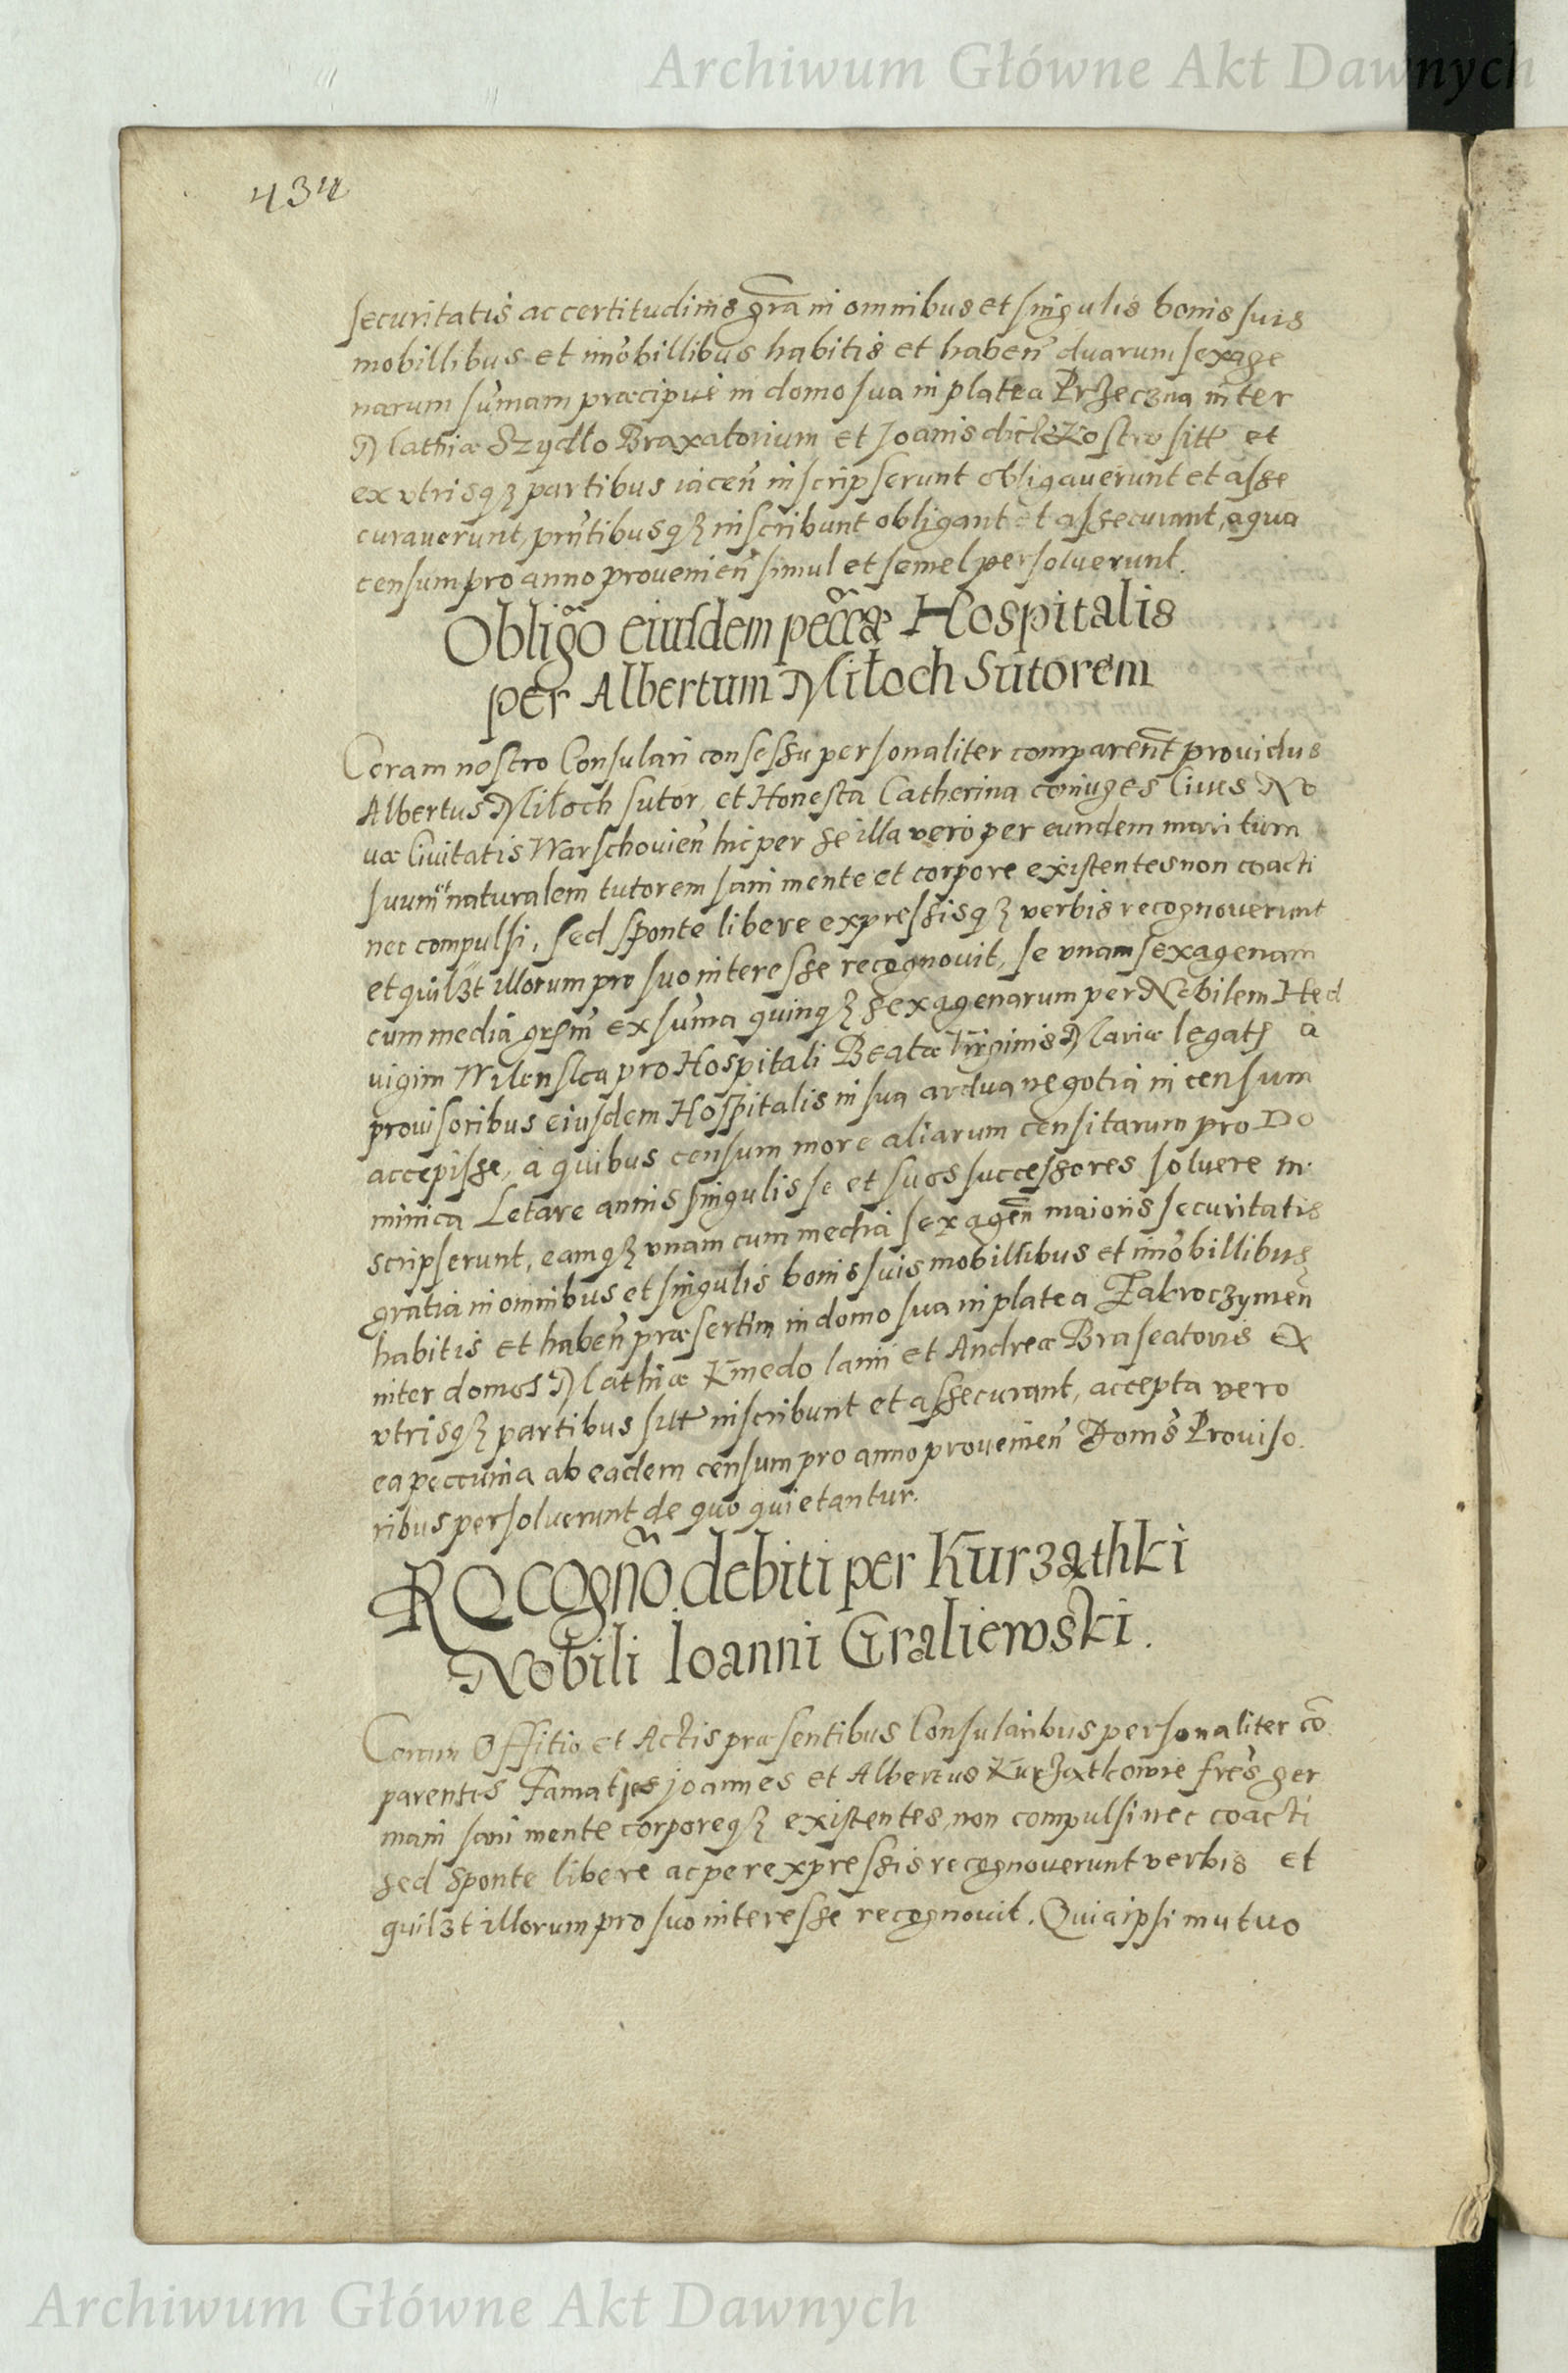 Archiwum Główne Akt Dawnych
434
securitatis ac certitudinis gra͠ in omnibus et singulis bonis suis
mobillibus et im̃obillibus habitis et habeñ duarum sexage
narum sum̃am præcipue in domo sua in platea Przeczna inter
Mathiæ Szydło Braxatorium et Joanis dicti Kostro sitt et
ex vtrisqꝫ partibus iaceñ inscripserunt obligaverunt et asse
curaverunt, pñtibusqꝫ inscribunt obligant et assecurant, a qua
censum pro anno provenieñ simul et semel persoluerunt.
Obligõ eiusdem pecc̃æ Hospitalis
per Albertum Miłoch Sutorem
Coram nostro Consulari consessu personaliter compareñt providus
Albertus Miłoch sutor, et Honesta Catherina coniuges Ciues No
væ Civitatis Warschovieñ hic per se illa vero per eundem maritum
suum ut naturalem tutorem sani mente et corpore existentes non coacti
nec compulsi, sed sponte libere expressisqꝫ verbis recognouerunt
et quilꝫt illorum pro suo interesse recognouit, se vnam sexagenam
cum media grs̃m ex sum̃a quinqꝫ sexagenarum per Nobilem Hed
vigim Wilenska pro Hospitali Beatæ Virginis Mariæ legatꝭ à
provisoribus eiusdem Hospitalis in sua ardua negotia in censum
accepisse, à quibus censum more aliarum censitarum pro Do
minica Letare annis singulis se et suos successores soluere in
scripserunt, eamqꝫ vnam cum media sexageñ maioris securitatis
gratia in omnibus et singulis bonis suis mobillibus et im̃obillibus
habitis et habeñ præsertim in domo sua in platea Zakroczymeñ
inter domos Mathiæ Kmedo lanii et Andreæ Braseatoris Ex
vtrisqꝫ partibus sitt inscribunt et assecurant, accepta vero
ea peccunia ab eadem censum pro anno provenieñ Domĩs Proviso
ribus persoluerunt de quo quietantur.
Recognõ debiti per Kurzathki
Nobili Ioanni Graliewski.
Coram Offitio et Actis præsentibus Consularibus personaliter cõ
parentes Famatj Joannes et Albertus Kurzatkowie fres̃ ger
mani sani mente corporeqꝫ existentes, non compulsi nec coacti
sed sponte libere ac per expressis recognouerunt verbis et
quilꝫt illorum pro suo interesse recognouit. Quia ipsi mutuo
Archiwum Główne Akt Dawnych